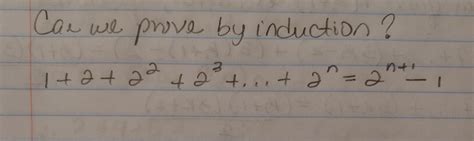 Can we prove by induction?
1 + 2 + 2² + 2³ + ... + 2ⁿ = 2ⁿ⁺¹ - 1